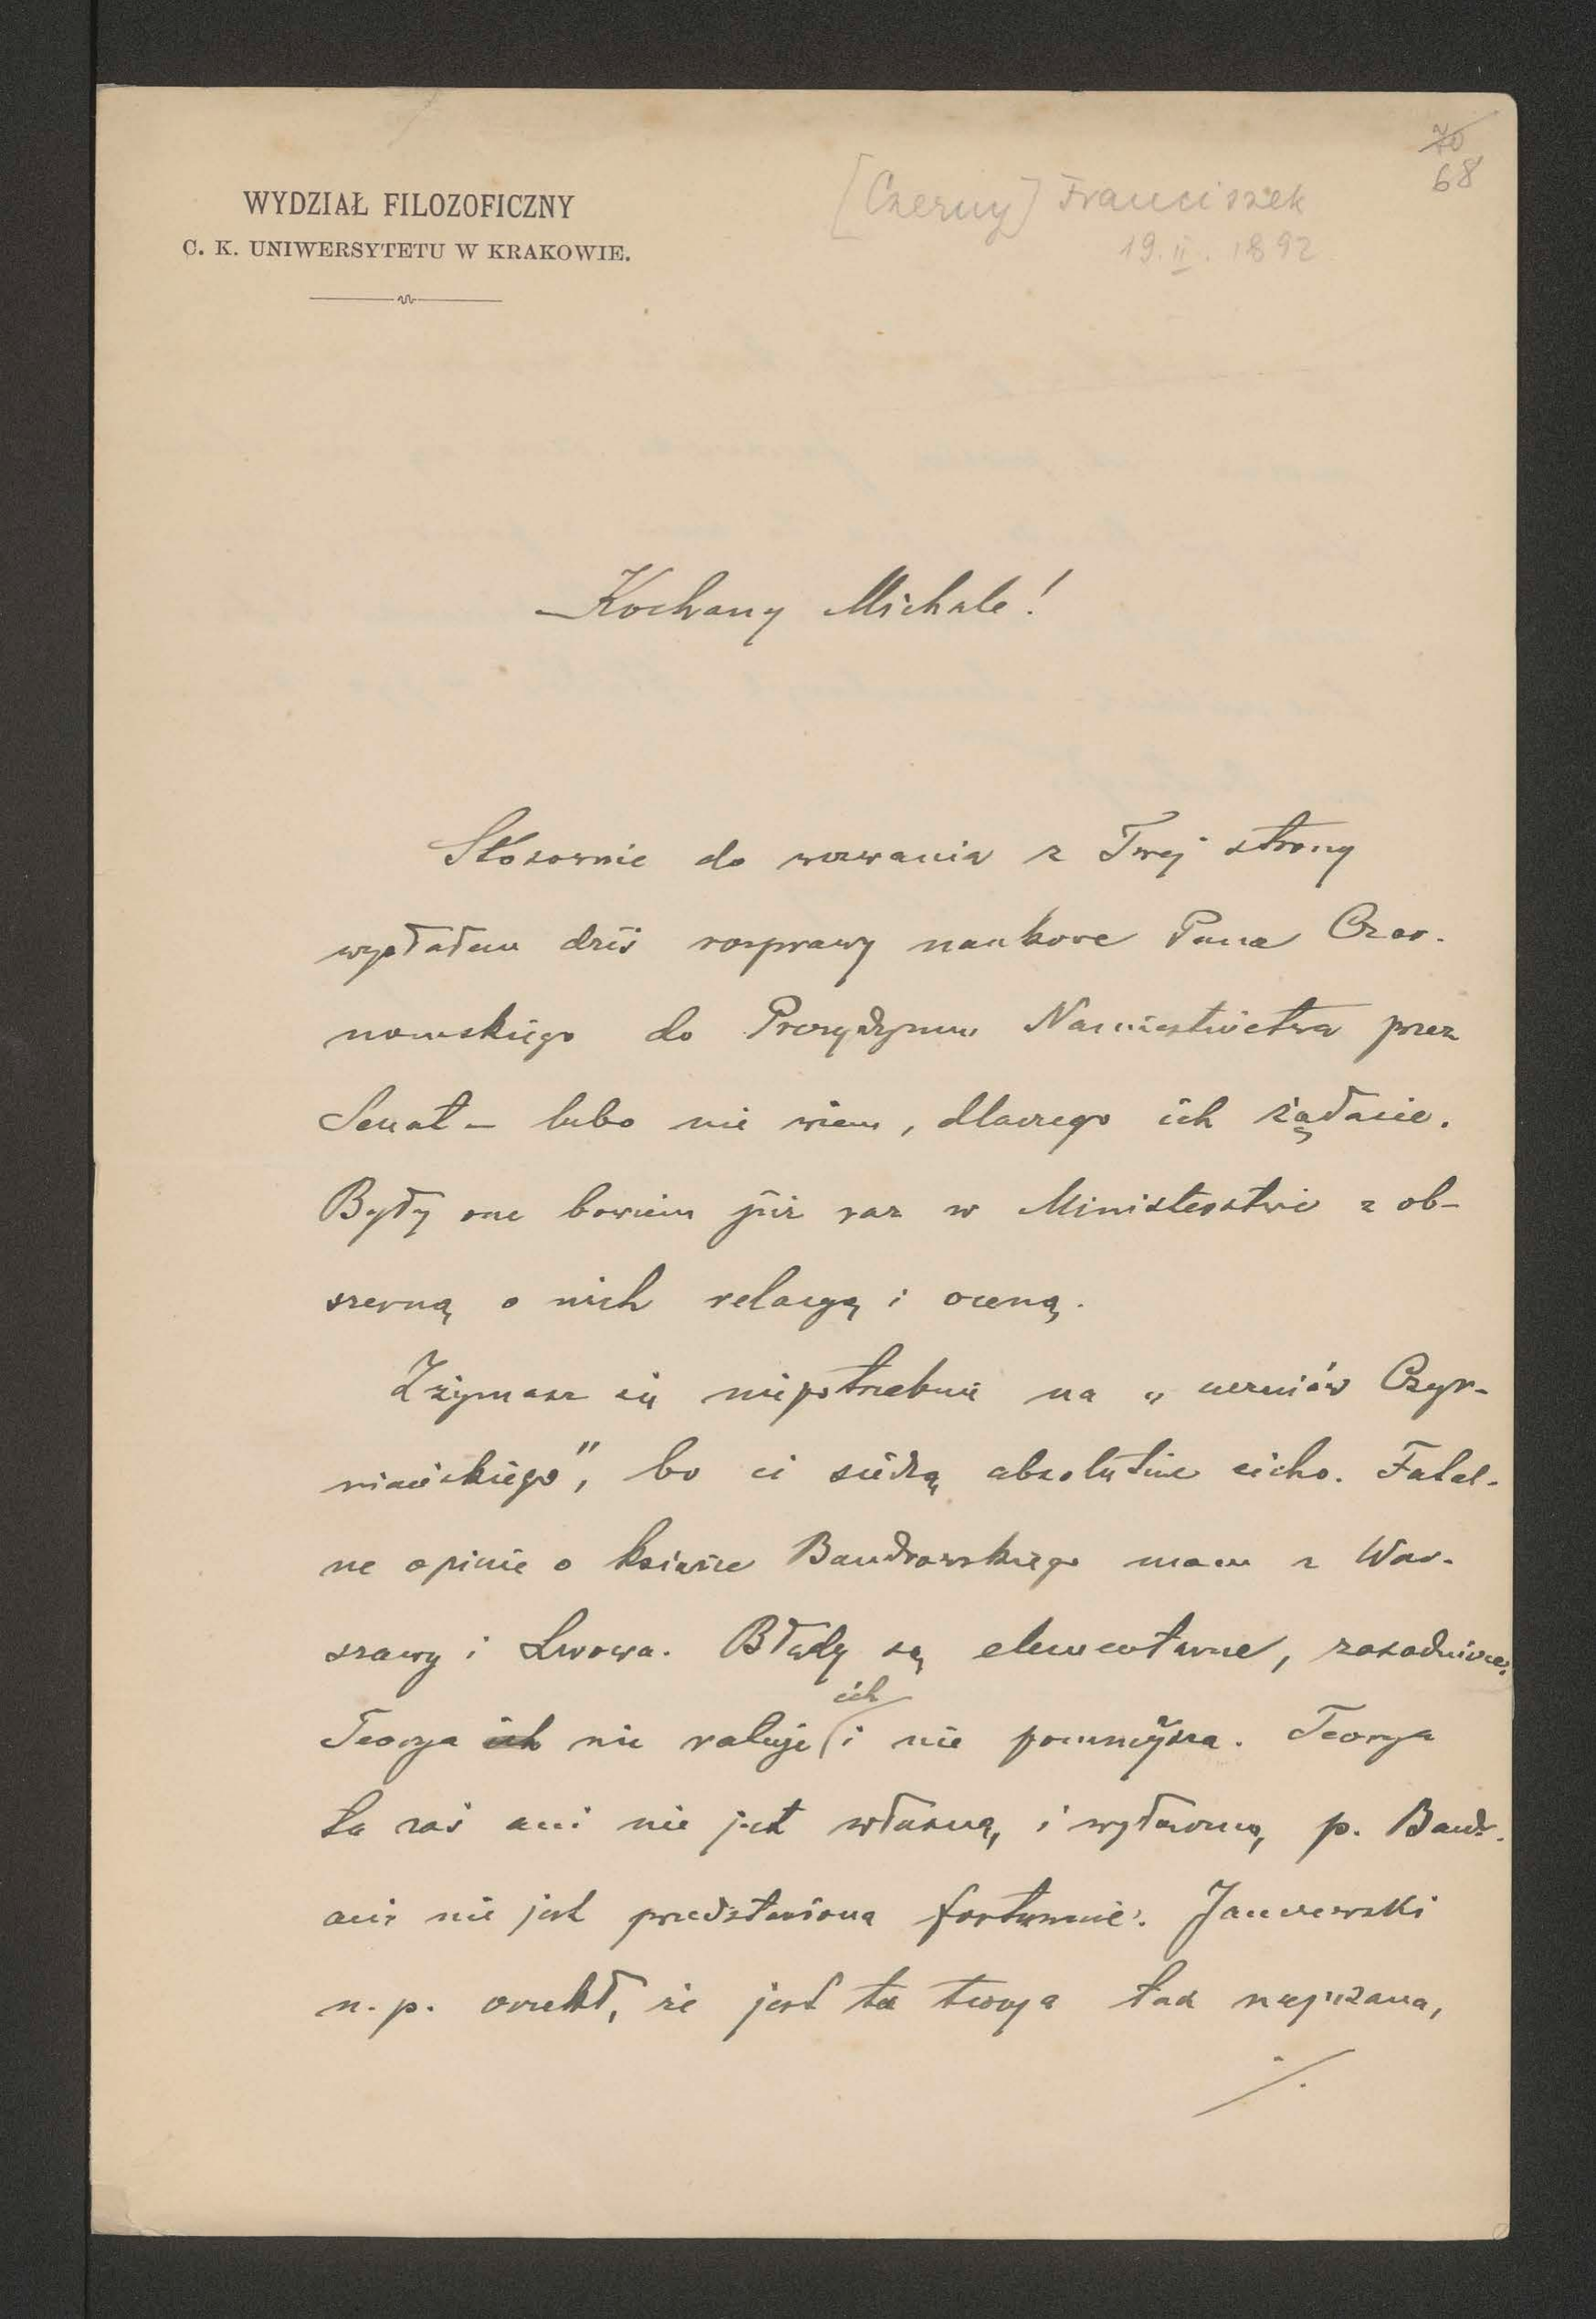 70
68
[Czerny] Franciszek
19.II.1892
WYDZIAŁ FILOZOFICZNY
C. K. UNIWERSYTETU W KRAKOWIE.
Kochany Michale!
Stosownie do wezwania z Twej strony
wysłałem dziś rozprawy naukowe Pana Czar-
nomskiego do Prezydyum Namiestnictwa przez
Senat – lubo nie wiem, dlaczego ich żądacie.
Były one bowiem już raz w Ministerstwie z ob-
szerną o nich relacyą i oceną.
Zżymasz się niepotrzebnie na „uczniów Czyr-
niańskiego", bo ci siedzą absolutnie cicho. Fatal-
ne opinie o książce Bandrowskiego mam z War-
szawy i Lwowa. Błędy są elementarne, zasadnicze,
Teorya ich nie ratuje ich i nie pomniejsza. Teorya
ta zaś ani nie jest własną, i wyłączną, p. Bandr.
ani nie jest przedstawiona fortunnie. Janczewski
n. p. orzekł, że jest ta teorya tak napisana,
./.